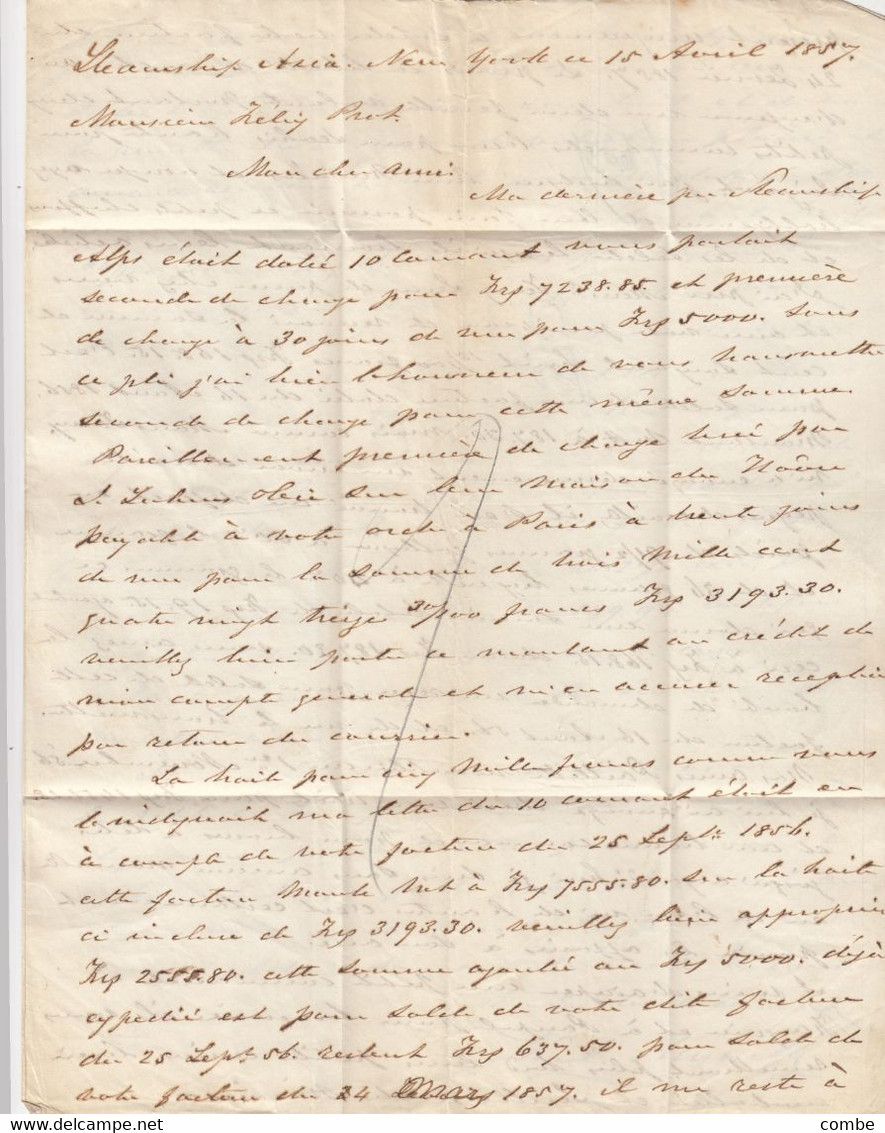 Steamship Asia. New York ce 15 Avril 1857.
Monsieur Félix Prot.
Mon cher ami.
Ma dernière par Steamship
Alps était daté 10 Courant vous portait
seconde de change pour Frs 7238.85. et première
de change à 30 jours de vue pour Frs 5000. Sous
ce pli j'ai bien l'honneur de vous transmettre
seconde de change pour cette même somme.
Pareillement première de change tiré par
sur leur maison du Hâvre
payable à votre ordre à Paris à trente jours
de vue pour la somme de trois mille cent
quatre vingt treize 30/100 francs Frs 3193.30.
veuillez bien porter ce montant au crédit de
mon compte general et m'en accuser reception
par retour du courrier.
La traite pour cinq mille francs comme vous
l'indiquait ma lettre du 10 courant était en
à compte de votre facture du 25 Septre 1856.
cette facture monte net à Frs 7555.80. sur la traite
ci incluse de Frs 3193.30. veuillez bien approprier
Frs 2555.80. cette somme ajouté au Frs 5000. déjà
expedié est pour solde de votre dite facture
du 25 Sept. 56. restent Frs 637.50. pour solde de
votre facture du 24 Mars 1857. il me reste à
combe